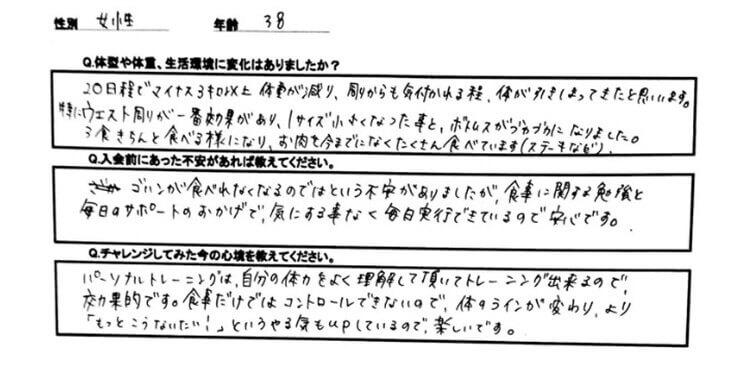 性別 女性 年齢 38
Q.体型や体重、生活環境に変化はありましたか？
20日程でマイナス3キロ以上体重が減り、周りからも気付かれる程、体が引きしまってきたと思います。
特にウエスト周りが一番効果があり、1サイズ小さくなった事と、ボトムスがブカブカになりました。
3食きちんと食べる様になり、お肉を今までになくたくさん食べています(ステーキなど)。
Q.入会前にあった不安があれば教えてください。
ゴハンが食べれなくなるのではという不安がありましたが、食事に関する勉強と
毎日のサポートのおかげで、気にする事なく毎日実行できているので安心です。
Q.チャレンジしてみた今の心境を教えてください。
パーソナルトレーニングは、自分の体力をよく理解して頂いてトレーニング出来るので、
効果的です。食事だけではコントロールできないので、体のラインが変わり、より
「もっとこうないたい！」というやる気もupしているので、楽しいです。